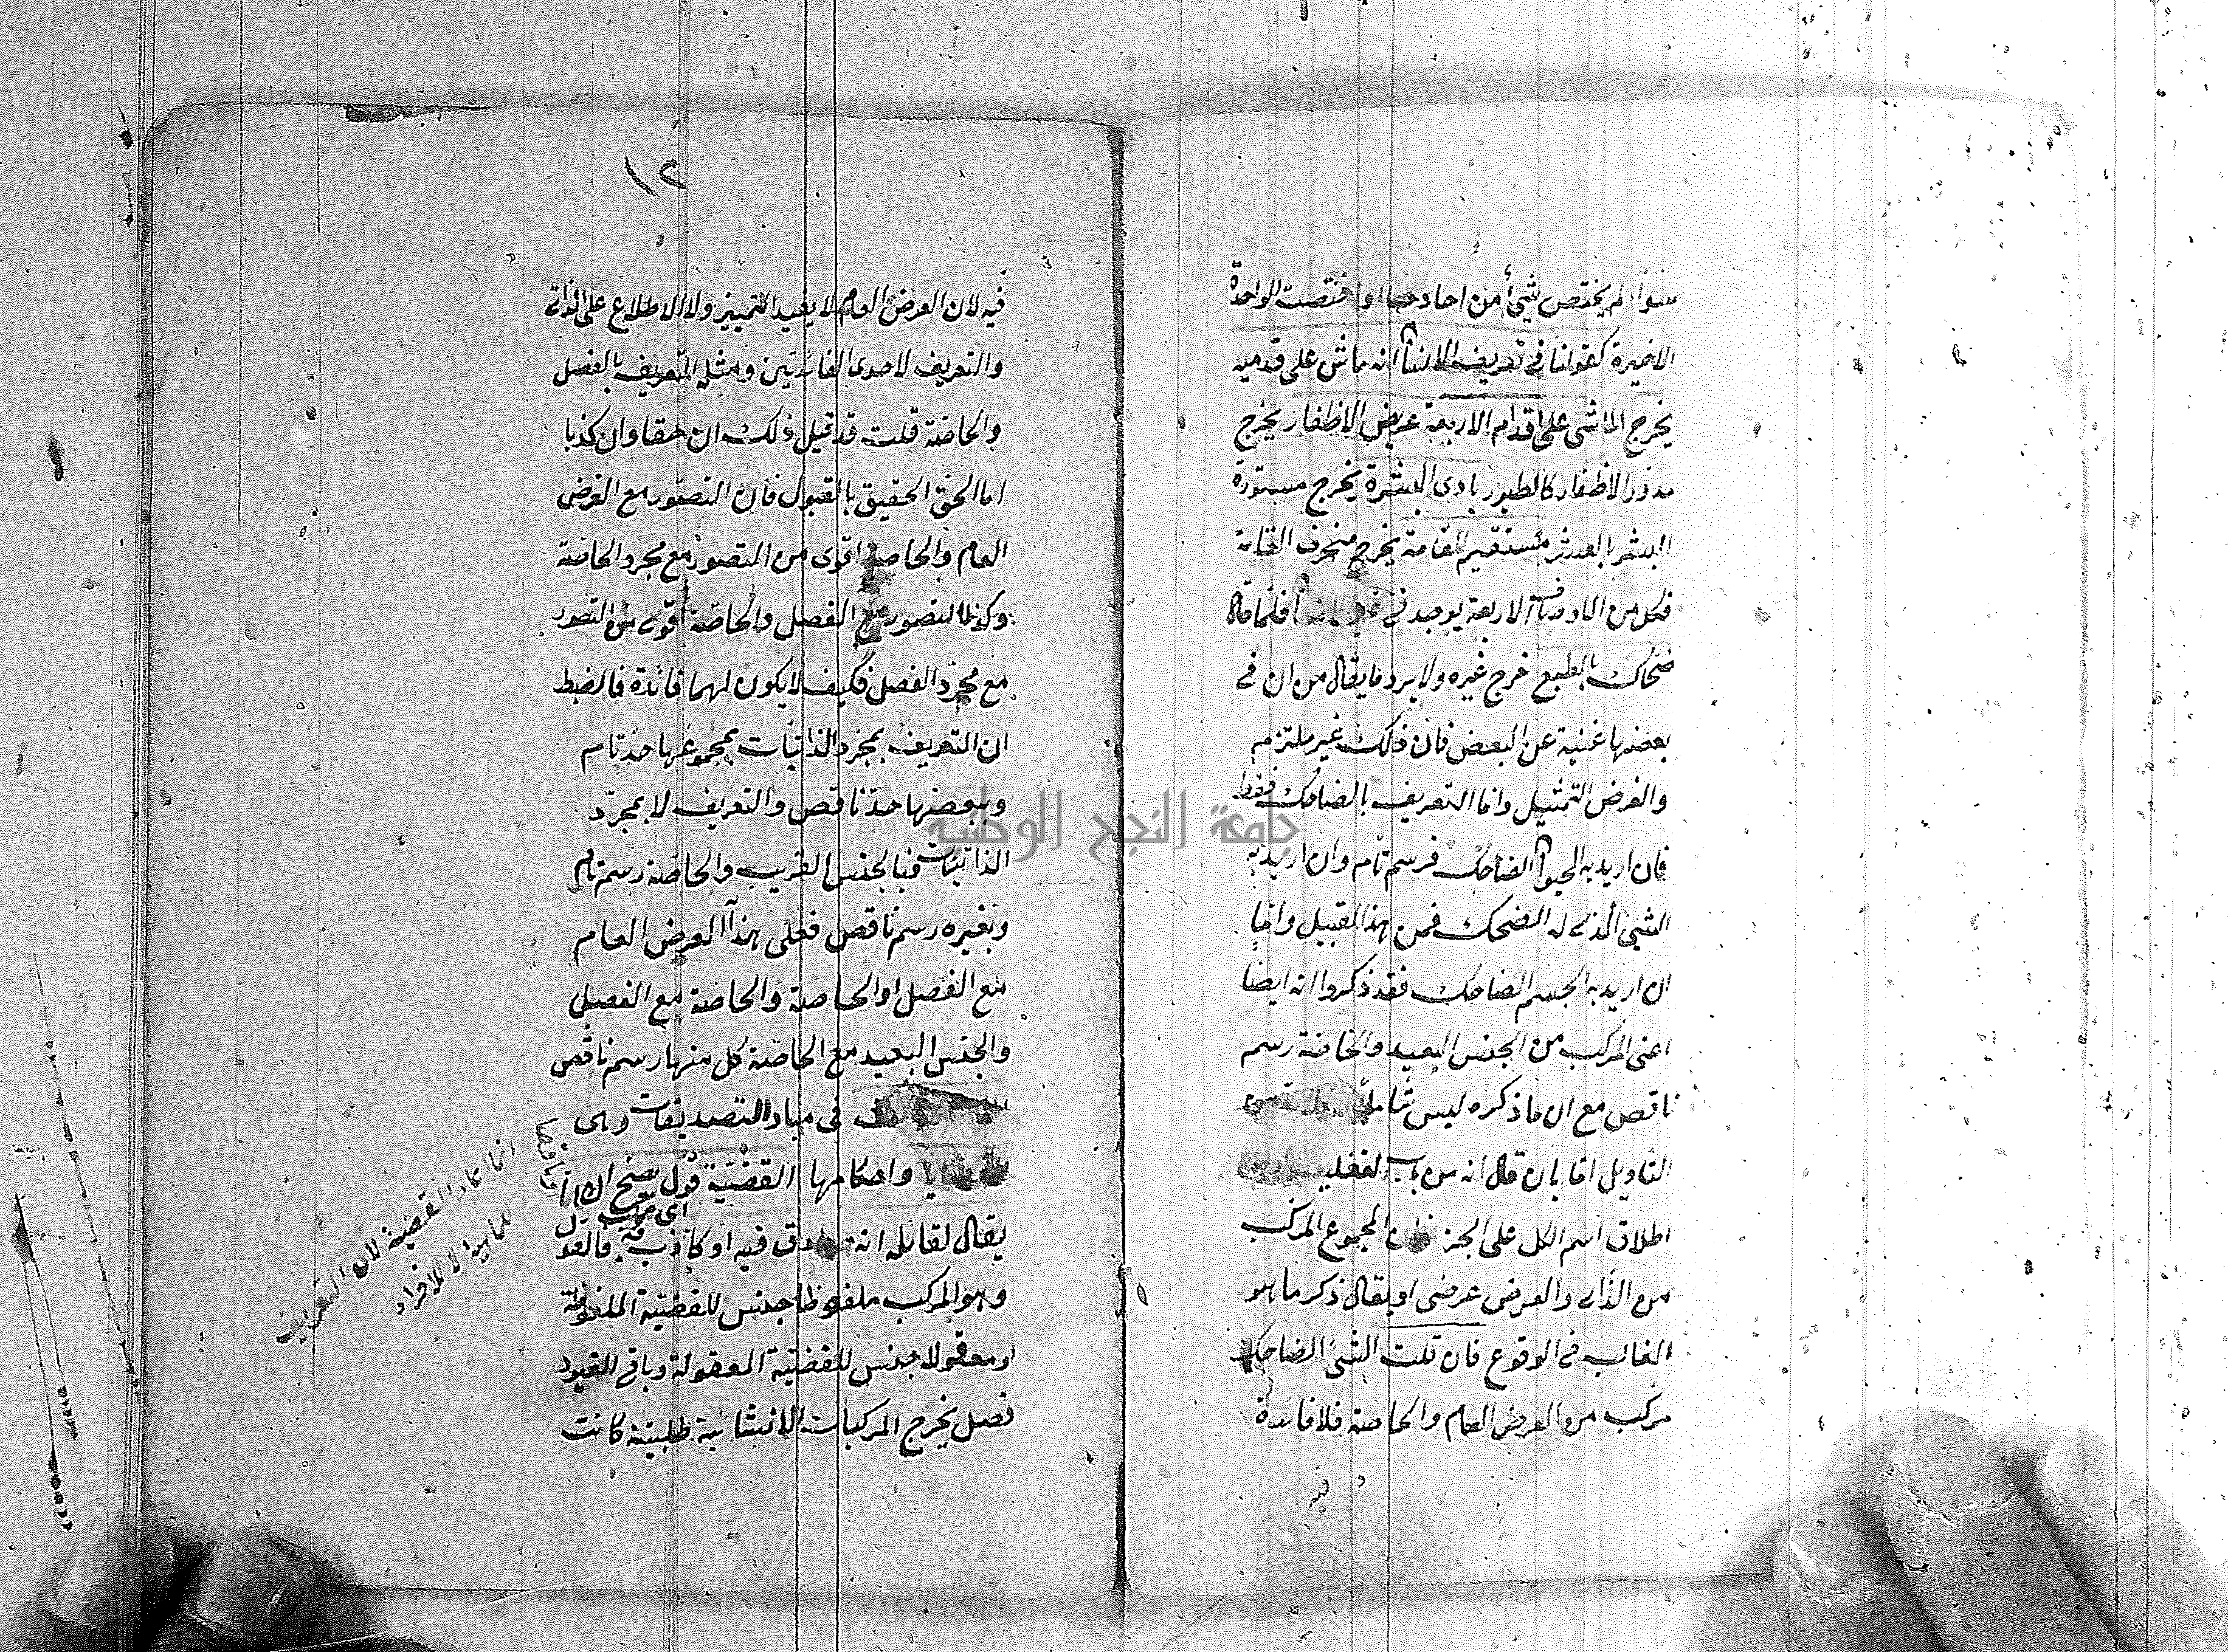 سواء لم يختص شيئ من احادها او اختصت الواحدة
الاخيرة كقولنا في تعريف الانسان انه ماش على قدميه
يخرج الماشى على اقدام الاربعة عريض الاظفار يخرج
مدور الاظفار كالطيور بادى البشرة يخرج مستورة
البشر بالعرش مستقيم القامة يخرج منحرف القامة
فكل من الاوصاف الاربعة يوجد في فلما قال
ضحاك بالطبع خرج غيره ولا يرد ما يقال من ان في
بعضها غنية عن البعض فان ذلك غير ملتزم
والغرض التمثيل واما التعريف بالضاحك فقط
فان اريد به الحيوان الضاحك فرسم تام وان اريد به
الشيئ الذى له الضحك فمن هذا القبيل واما
ان اريد به الجسم الضاحك فقد ذكروا انه ايضا
اعنى المركب من الجنس البعيد والخاصة رسم
ناقص مع ان ما ذكره ليس شاملا
التأويل اما بان قال انه من باب التغليب
اطلاق اسم الكل على الجزء المجموع المركب
من الذاتى والعرض عرضى او يقال ذكر ما هو
الغالب في الوقوع فان قلت الشيئ الضاحك
مركب من العرض العام والخاصة فلا فائدة
فيه
١٢
فيه لان العرض العام لا يفيد التمييز ولا الاطلاع على الذاتى
والتعريف لاحدى الفائدتين ومثله التعريف بالفصل
والخاصة قلت قد قيل ذلك ان حقا وان كذبا
اما الحق الحقيق بالقبول فان التصور مع العرض
العام والخاصة اقوى من التصور مع مجرد الخاصة
وكذا التصور مع الفصل والخاصة اقوى من التصور
مع مجرد الفصل فكيف لا يكون لهما فائدة فالضبط
ان التعريف بمجرد الذاتيات بمجموعها حد تام
وببعضها حد ناقص والتعريف لا بمجرد
الذاتيات فبالجنس القريب والخاصة رسم تام
وبغيره رسم ناقص فعلى هذا العرض العام
مع الفصل او الخاصة والخاصة مع الفصل
والجنس البعيد مع الخاصة كل منها رسم ناقص
في مباد التصديقات وهى
واحكامها القضية قول يصح ان
اى مركب
يقال لقائله انه صادق فيه او كاذب فيه فالقول
وهو المركب ملفوظا جنس للقضية الملفوظة
او معقولا جنس للقضية المعقولة وباقى القيود
فصل يخرج المركبات الانشائية طلبية كانت
انما القضية لان التعريف
للماهية لا للافراد
جامعة النجاح الوطنية